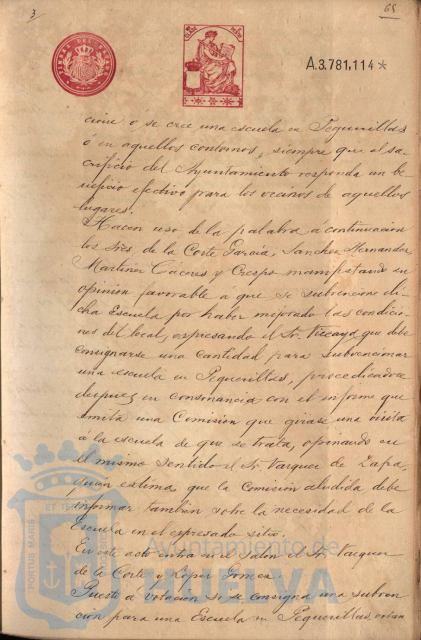 3
65
TIMBRE DEL ESTADO
A.3.781,114*
cione o se cree una escuela en Peguerillas
ó en aquellos contornos, siempre que al sa-
crificio del Ayuntamiento responda un be-
neficio efectivo para los vecinos de aquellos
lugares.
Hacen uso de la palabra á continuación
los Sres. de la Corte García, Sanchez Hernandez,
Martinez Cáceres y Crespo manifestando su
opinion favorable á que se subvencione di-
cha Escuela por haber mejorado las condicio-
nes del local, expresando el Sr. que debe
consignarse una cantidad para subvencionar
una escuela en Peguerillas,
despues en consonancia con el informe que
emita una Comision que girase una visita
á la escuela de que se trata, opinando en
el mismo sentido el Sr. Vazquez de Zafra,
quien estima que la Comision aludida debe
informar tambien sobre la necesidad de la
Escuela en el expresado sitio.
En este acto entra en el Salon el Sr. Vazquez
de la Corte y Lopez Gomez.
Puesto á votacion si se consigna una subven-
cion para una Escuela en Peguerillas, votan
PORTUS MARIS ET TERRAE
Ayuntamiento de
HUELVA